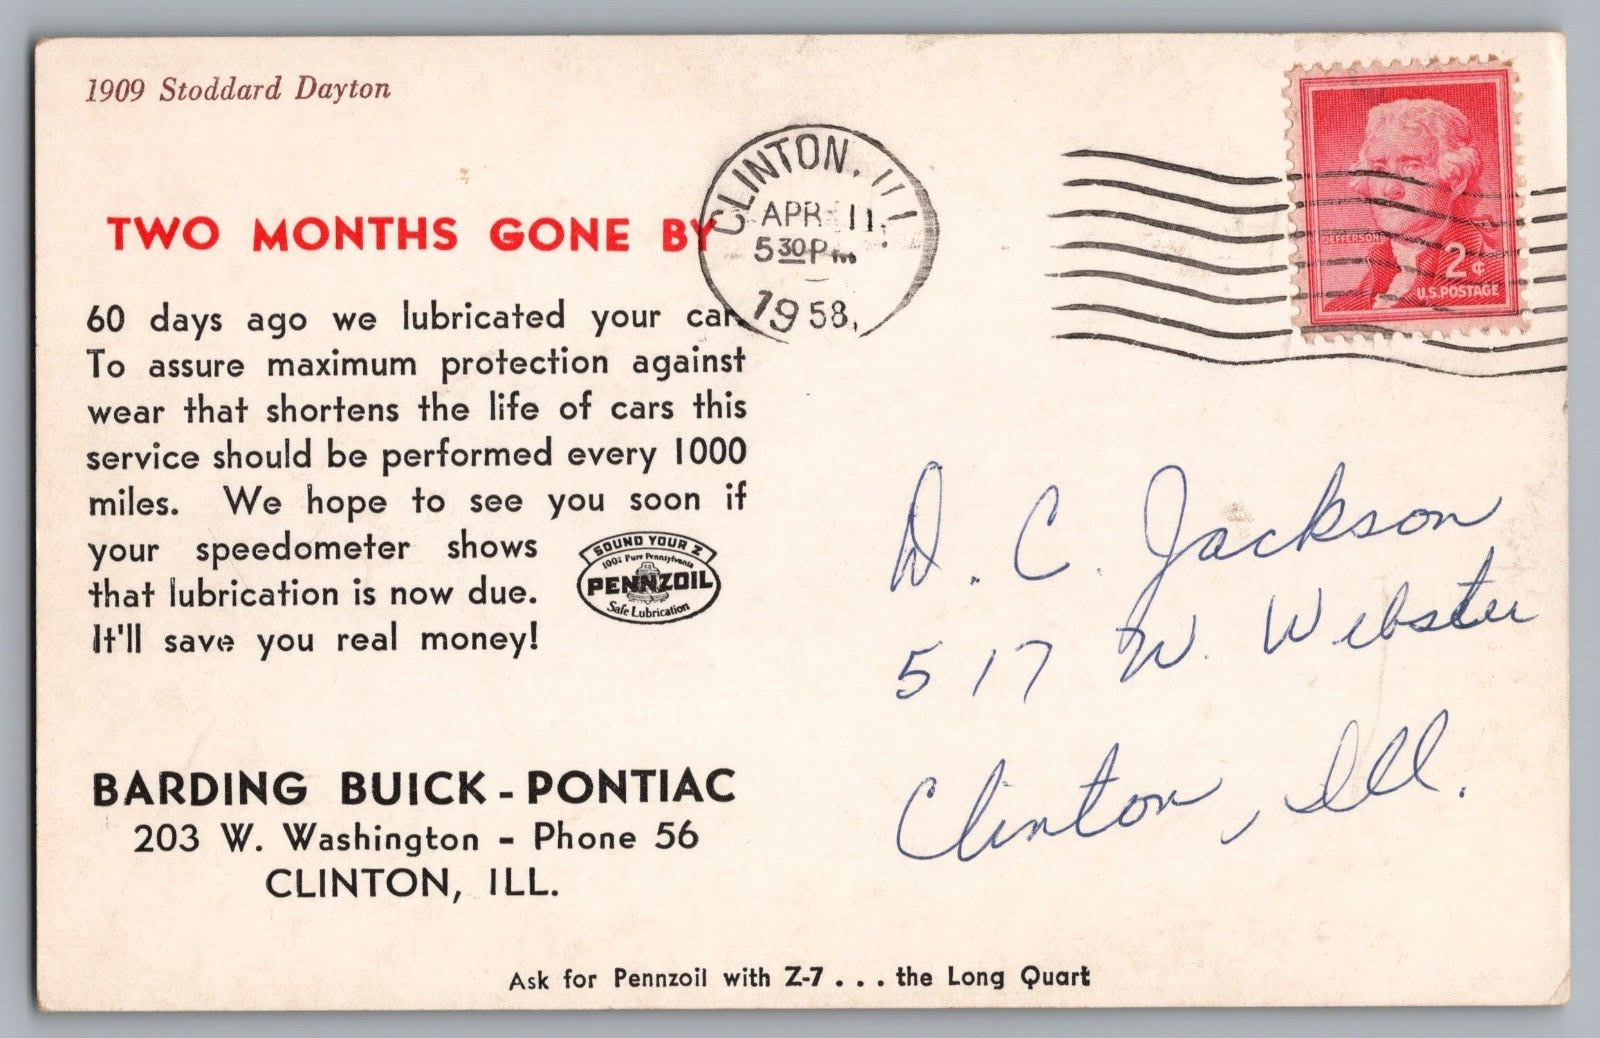 1909 Stoddard Dayton
TWO MONTHS GONE BY
60 days ago we lubricated your car.
To assure maximum protection against
wear that shortens the life of cars this
service should be performed every 1000
miles. We hope to see you soon if
your speedometer shows
that lubrication is now due.
It'll save you real money!
SOUND YOUR Z
100% Pure Pennsylvania
PENNZOIL
Safe Lubrication
BARDING BUICK - PONTIAC
203 W. Washington - Phone 56
CLINTON, ILL.
Ask for Pennzoil with Z-7 . . . the Long Quart
CLINTON, ILL.
APR 11
5 30 PM
1958
JEFFERSON
2¢
U.S. POSTAGE
D. C. Jackson
517 W. Webster
Clinton, Ill.